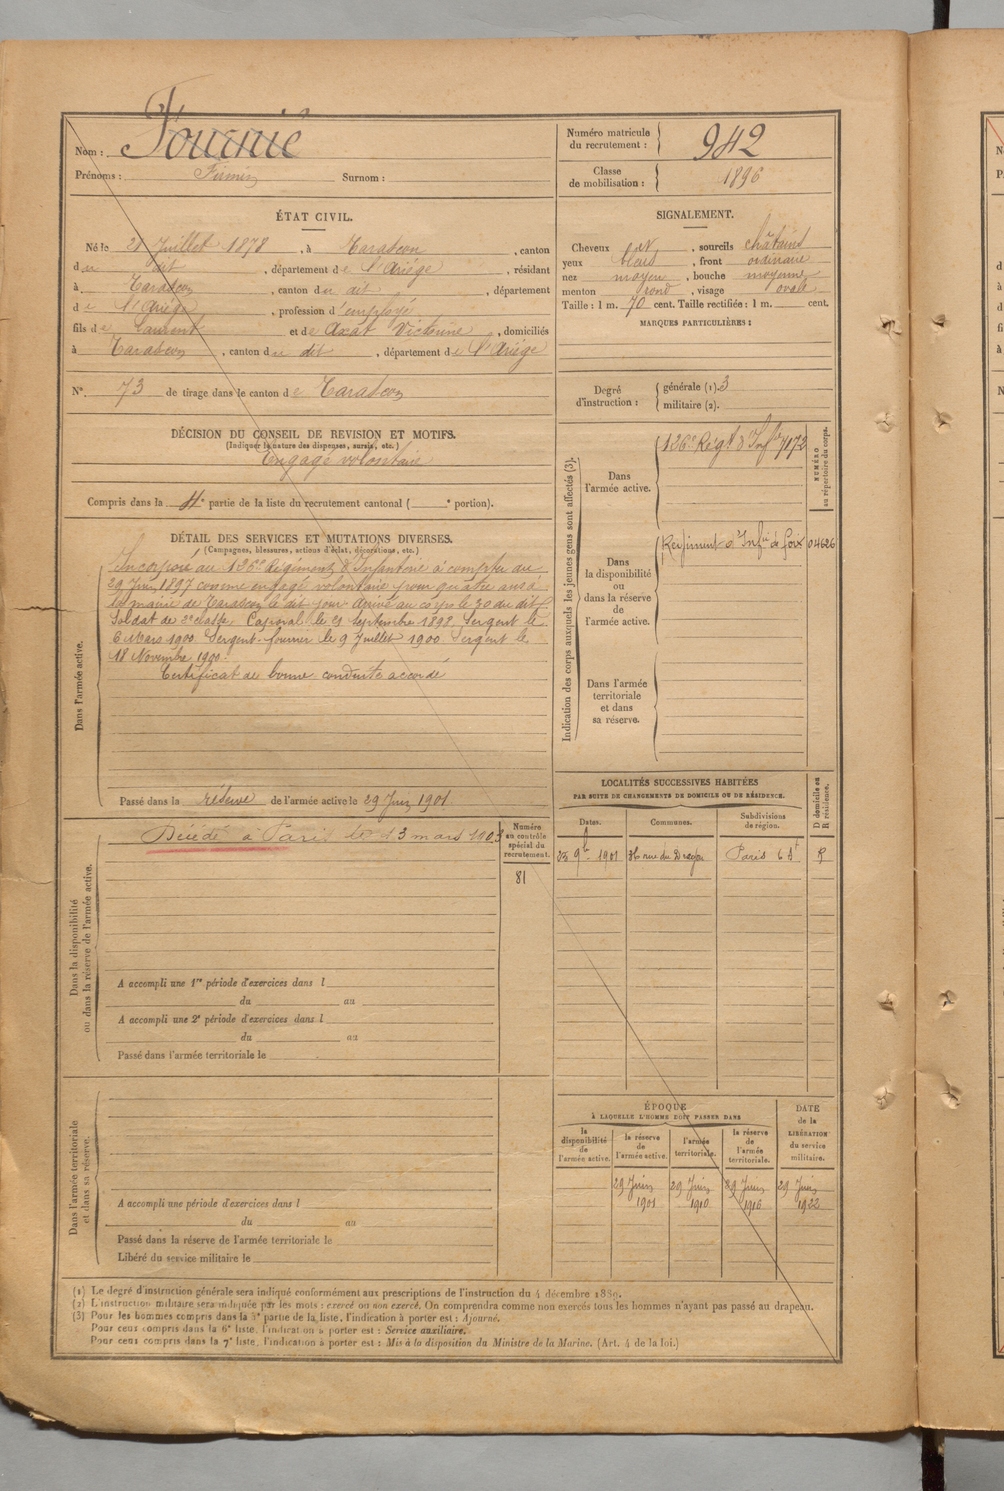 Nom : Fournié
Prénoms : Firmin Surnom :
Numéro matricule du recrutement : 942
Classe de mobilisation : 1896
ÉTAT CIVIL.
Né le 21 Juillet 1878, à Tarascon, canton
du dit, département de l'Ariège, résidant
à Tarascon, canton du dit, département
de l'Ariège, profession d'employé
fils de Laurent et de Axat Victorine, domiciliés
à Tarascon, canton du dit, département de l'Ariège
N° 73 de tirage dans le canton de Tarascon
SIGNALEMENT.
Cheveux et, sourcils châtains
yeux bleus, front ordinaire
nez moyen, bouche moyenne
menton rond, visage ovale
Taille : 1 m. 70 cent. Taille rectifiée : 1 m. cent.
MARQUES PARTICULIÈRES :
Degré d'instruction :
générale (1). 3
militaire (2).
DÉCISION DU CONSEIL DE REVISION ET MOTIFS.
(Indiquer la nature des dispenses, sursis, etc.)
Engagé volontaire
Compris dans la 4e partie de la liste du recrutement cantonal ( e portion).
DÉTAIL DES SERVICES ET MUTATIONS DIVERSES.
(Campagnes, blessures, actions d'éclat, décorations, etc.)
Dans l'armée active.
Incorporé au 126e Régiment d'Infanterie à compter du
29 Juin 1897 comme engagé volontaire pour quatre ans à
la mairie de Tarascon le dit jour Arrivé au corps le 30 du dit
Soldat de 2e classe. Caporal le 21 Septembre 1898. Sergent le
6 Mars 1900. Sergent fourrier le 9 Juillet 1900 Sergent le
18 Novembre 1900.
Certificat de bonne conduite accordé
Passé dans la réserve de l'armée active le 29 Juin 1901
Indication des corps auxquels les jeunes gens sont affectés (3).
NUMÉRO au répertoire du corps.
Dans l'armée active. 126e Régt d'Infie 7172
Dans la disponibilité ou dans la réserve de l'armée active. Régiment d'Infie de foix 04626
Dans l'armée territoriale et dans sa réserve.
LOCALITÉS SUCCESSIVES HABITÉES
PAR SUITE DE CHANGEMENTS DE DOMICILE OU DE RÉSIDENCE.
D domicile ou R résidence.
Dates. Communes. Subdivisions de région.
23 9b 1901 36 rue du Dragon Paris 6 R
Dans la disponibilité ou dans la réserve de l'armée active.
Décédé à Paris le 13 mars 1903
Numéro au contrôle spécial du recrutement.
81
A accompli une 1re période d'exercices dans l
du au
A accompli une 2e période d'exercices dans l
du au
Passé dans l'armée territoriale le
Dans l'armée territoriale et dans sa réserve.
A accompli une période d'exercices dans l
du au
Passé dans la réserve de l'armée territoriale le
Libéré du service militaire le
ÉPOQUE
À LAQUELLE L'HOMME DOIT PASSER DANS
DATE de la LIBÉRATION du service militaire.
la disponibilité de l'armée active.
la réserve de l'armée active.
l'armée territoriale.
la réserve de l'armée territoriale.
29 Juin 1901 29 Juin 1910 29 Juin 1916 29 Juin 1922
(1) Le degré d'instruction générale sera indiqué conformément aux prescriptions de l'instruction du 4 décembre 1889.
(2) L'instruction militaire sera indiquée par les mots : exercé ou non exercé. On comprendra comme non exercés tous les hommes n'ayant pas passé au drapeau.
(3) Pour les hommes compris dans la 3e partie de la liste, l'indication à porter est : Ajourné.
Pour ceux compris dans la 6e liste, l'indication à porter est : Service auxiliaire.
Pour ceux compris dans la 7e liste, l'indication à porter est : Mis à la disposition du Ministre de la Marine. (Art. 4 de la loi.)